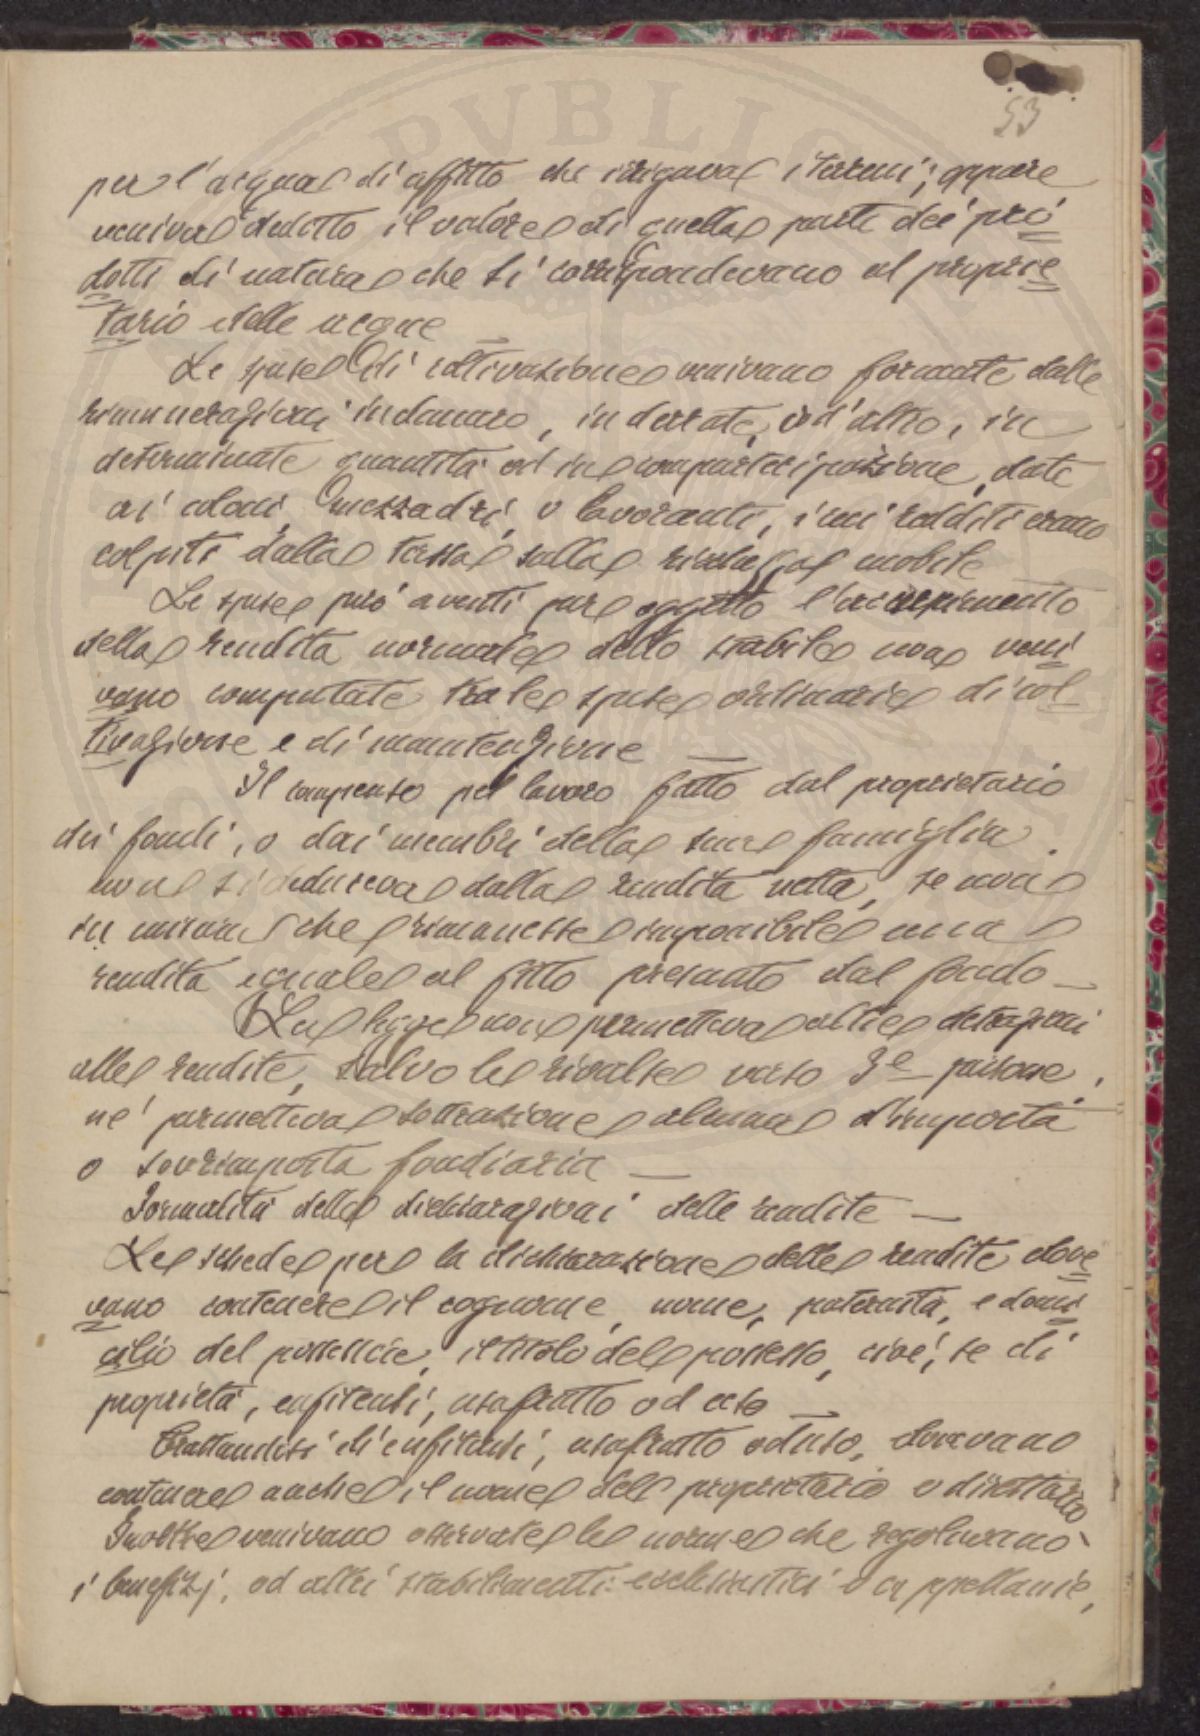 53
per l'acqua di affitto che irrigava i terreni; oppure
veniva dedotto il valore di quella parte dei pro=
dotti di natura che si corrispondevano al proprie=
tario delle acque
Le spese di coltivazione venivano formate dalle
rimunerazioni in danaro, in derrate, od altro, in
determinate quantità od in compartecipazione, date
ai coloni, mezzadri, o lavoranti, i cui redditi erano
colpiti dalla tassa sulla ricchezza mobile
Le spese però aventi per oggetto l'accrescimento
della rendita normale dello stabile non veni=
vano computate tra le spese ordinarie di col=
tivazione e di manutenzione —
Il compenso pel lavoro fatto dal proprietario
dei fondi, o dai membri della sua famiglia,
non si deduceva dalla rendita netta, se non
in misura che rimanesse imponibile una
rendita eguale al fitto presunto dal fondo —
La legge non permetteva altre detrazioni
alle rendite, salvo le rivalse verso 3e persone,
ne' permetteva sottrazione alcuna d'imposta
o sovrimposta fondiaria —
Formalità delle dichiarazioni delle rendite —
Le schede per la dichiarazione delle rendite dove=
vano contenere il cognome, nome, paternità, e domi=
cilio del possessore, il titolo del possesso, cioè, se di
proprietà, enfiteusi, usufrutto od uso —
Trattandosi di enfiteusi, usufrutto od uso, dovevano
contenere anche il nome del proprietario o direttario
Inoltre venivano osservate le norme che regolavano
i benefizj, od altri stabilimenti ecclesiastici o cappellanie,